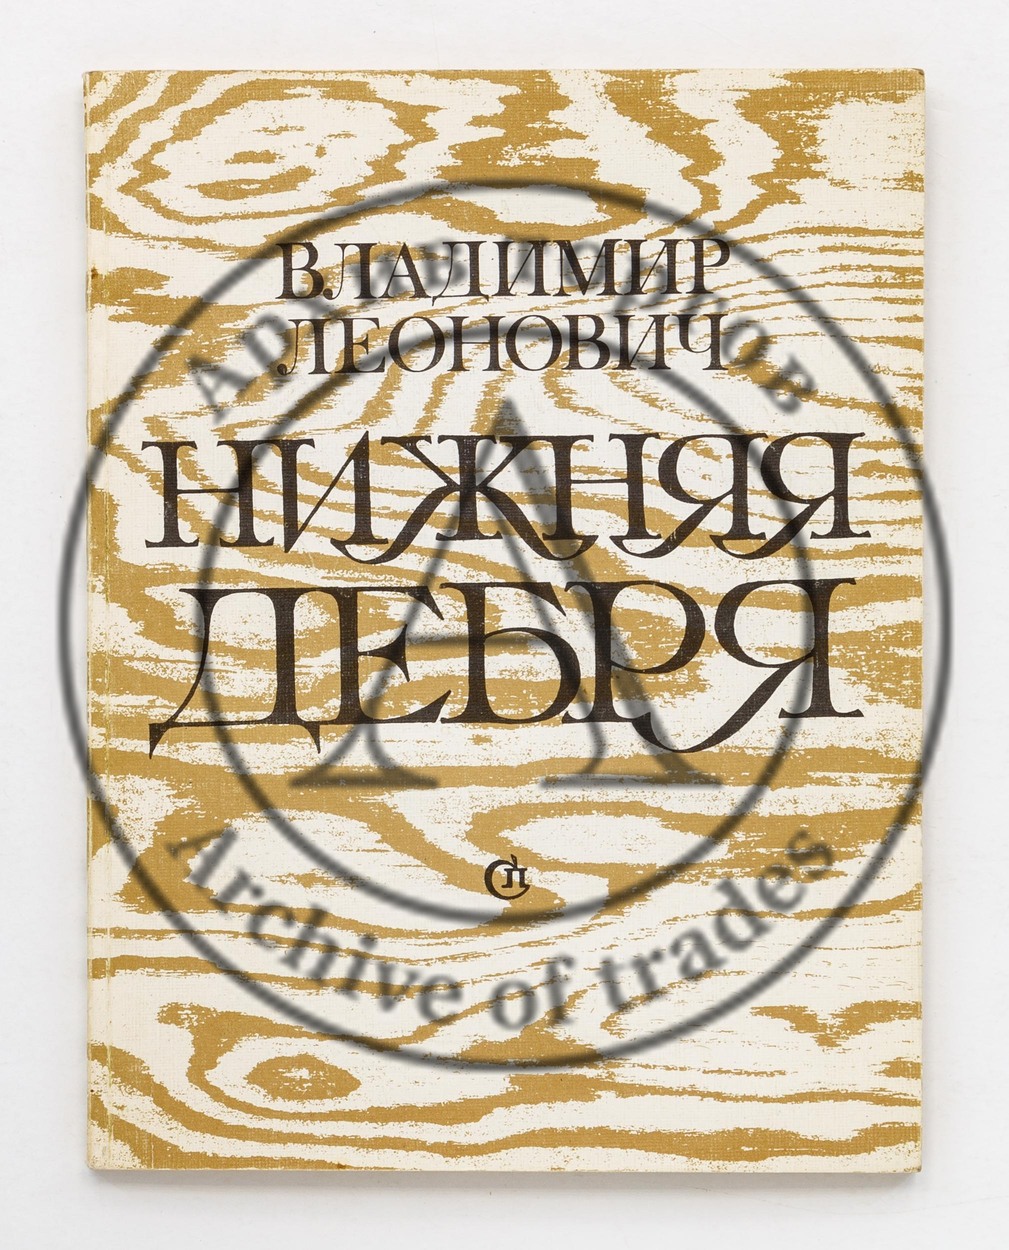 ВЛАДИМИР
ЛЕОНОВИЧ
НИЖНЯЯ
ДЕБРЯ
СП
Archive of trades